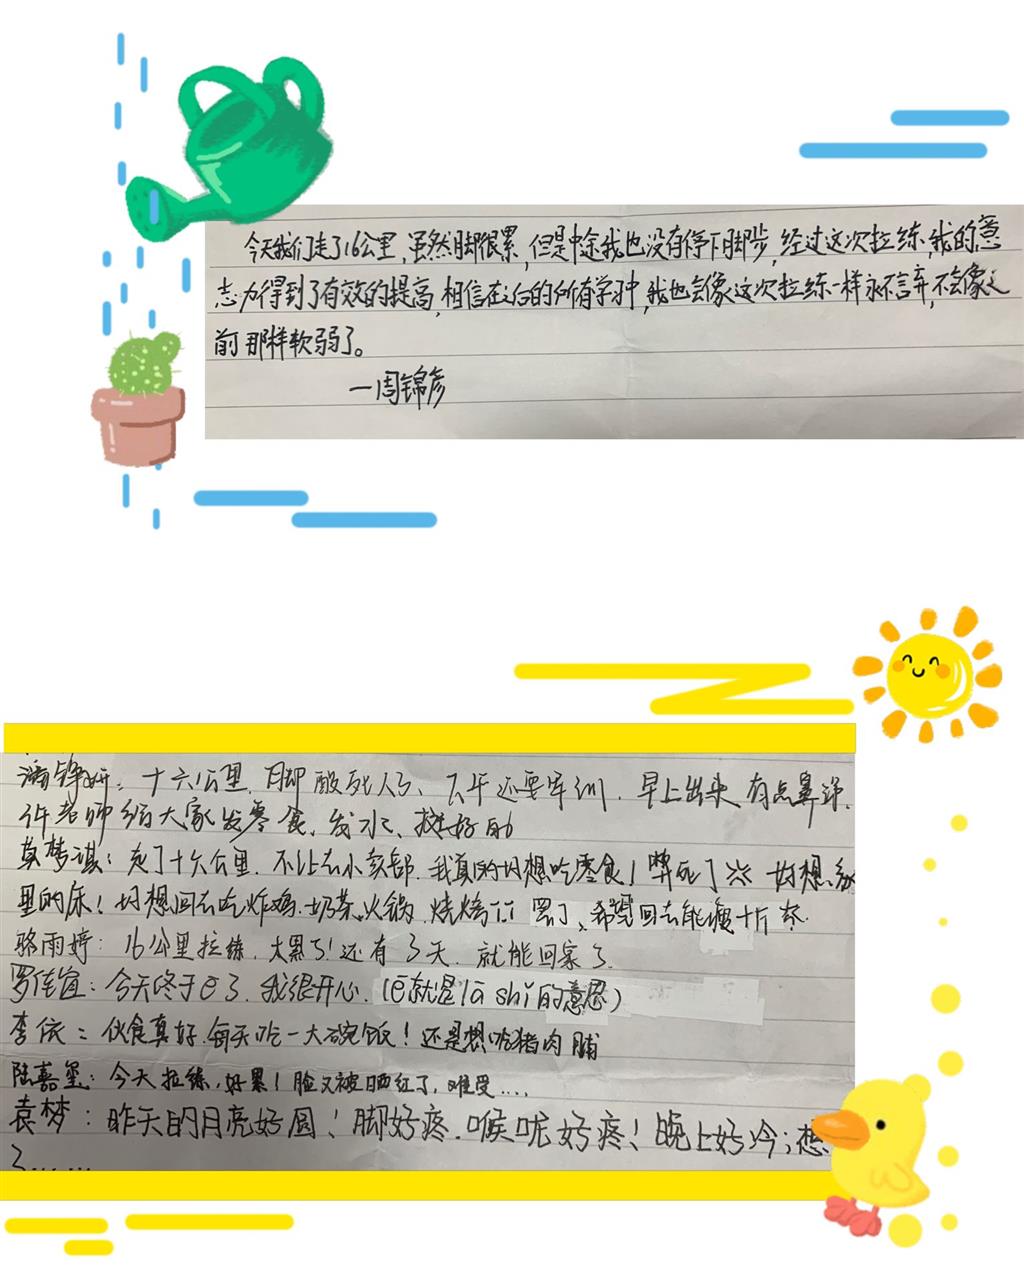 今天我们走了16公里,虽然脚很累,但是中途我也没有停下脚步,经过这次拉练,我的意
志力得到了有效的提高,相信在后的所有学习中,我也会像这次拉练一样永不言弃,不会像之
前那样软弱了。
—周锦彦
潘锦妍:十六公里,脚酸死人了、下午还要军训,早上出来有点鼻涕,
许老师给大家发零食、发水、挺好的
莫梦淇:走了十六公里,不让去小卖部,我真的好想吃零食!弊死了 好想家
里的床!好想回去吃炸鸡、奶茶、火锅、烧烤 罢了,希望回去能瘦十斤
骆雨婷:16公里拉练,太累了!还有3天,就能回家了
罗佳宜:今天终于ē了,我很开心,(ē就是lā shi的意思)
李依:伙食真好,每天吃一大碗饭!还是想吃猪肉脯
陆嘉玺:今天拉练,好累!脸又被晒红了,难受....
袁梦:昨天的月亮好圆!脚好疼,喉咙好疼!晚上好冷;想